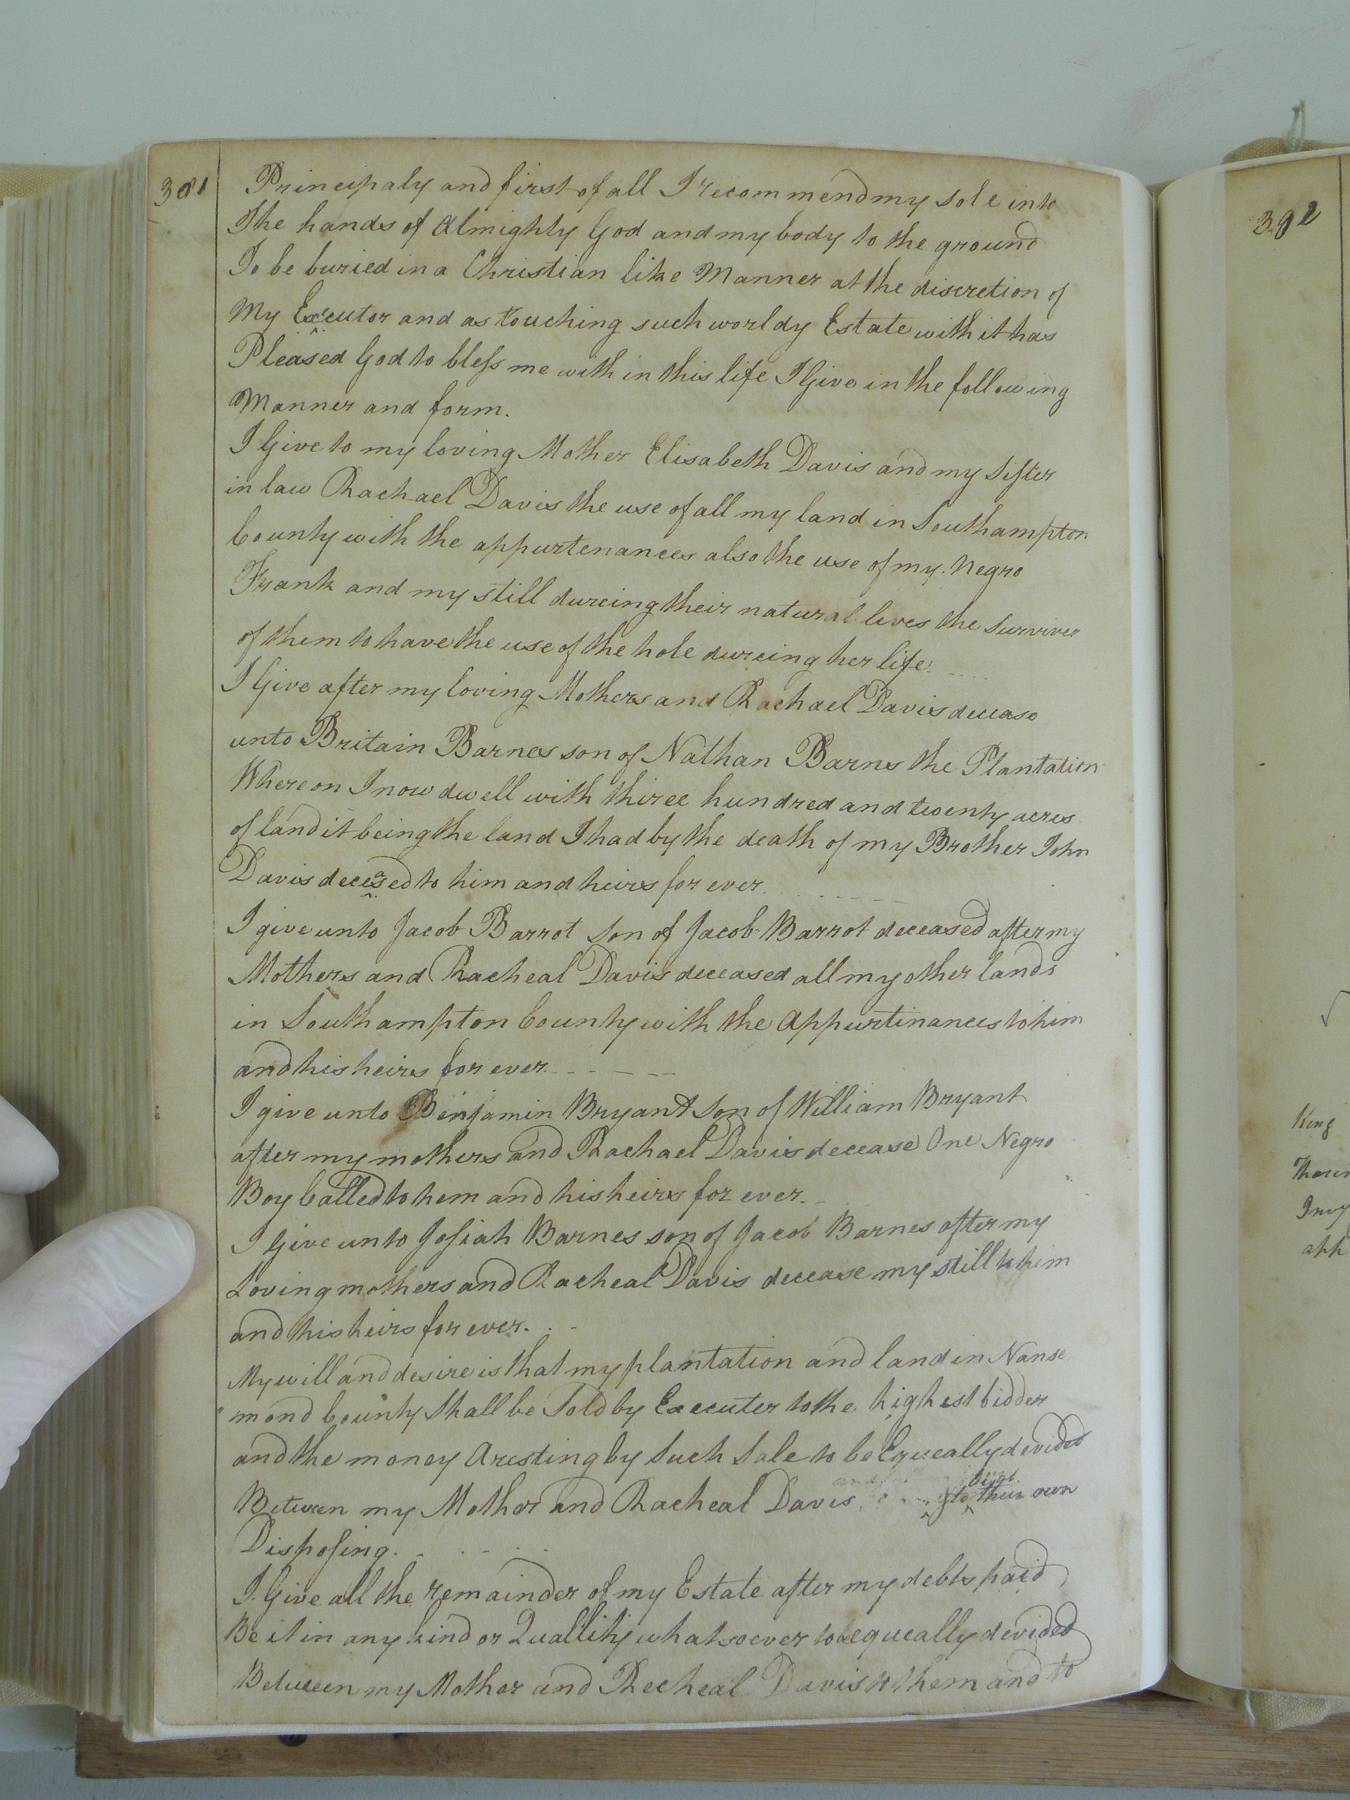 381
Principaly and first of all I recommend my sole into
The hands of Almighty God and my body to the ground
To be buried in a Christian like Manner at the discretion of
My Executor and as touching such worldy Estate with it has
Pleased God to bless me with in this life I Give in the following
Manner and form.
I Give to my loving Mother Elisabeth Davis and my Sister
in law Rachael Davis the use of all my land in Southampton
County with the appurtenances also the use of my Negro
Frank and my still dureing their natural lives the Surviver
of them to have the use of the hole dureing her life.
I Give after my loving Mothers and Rachael Davis decease
unto Britain Barnes son of Nathan Barns the Plantation
Whereon I now dwell with three hundred and twenty acres
of land it being the land I had by the death of my Brother John
Davis deceased to him and heirs for ever
I give unto Jacob Barrot Son of Jacob Barrot deceased after my
Mothers and Racheal Davis deceased all my other lands
in Southampton County with the Appurtinances to him
and his heirs for ever. - - - - -
I give unto Benjamin Bryant Son of William Bryant
after my mothers and Rachael Davis decease One Negro
Boy Called to hem and his heirs for ever.
I Give unto Josiah Barnes son of Jacob Barnes after my
Loving mothers and Racheal Davis decease my still to him
and his heirs for ever. - -
My will and desire is that my plantation and land in Nanse
mond County Shall be Sold by Executer to the highest bidder
and the money Arestingby Such Sale to be Equeally devided
Between my Mother and Racheal Davis to their own
Disposing.
I Give all the remainder of my Estate after my debts paid
Be it in any kind or Quallity whatsoever to be equeally devided
Between my Mother and Recheal Davis to them and to
392
King